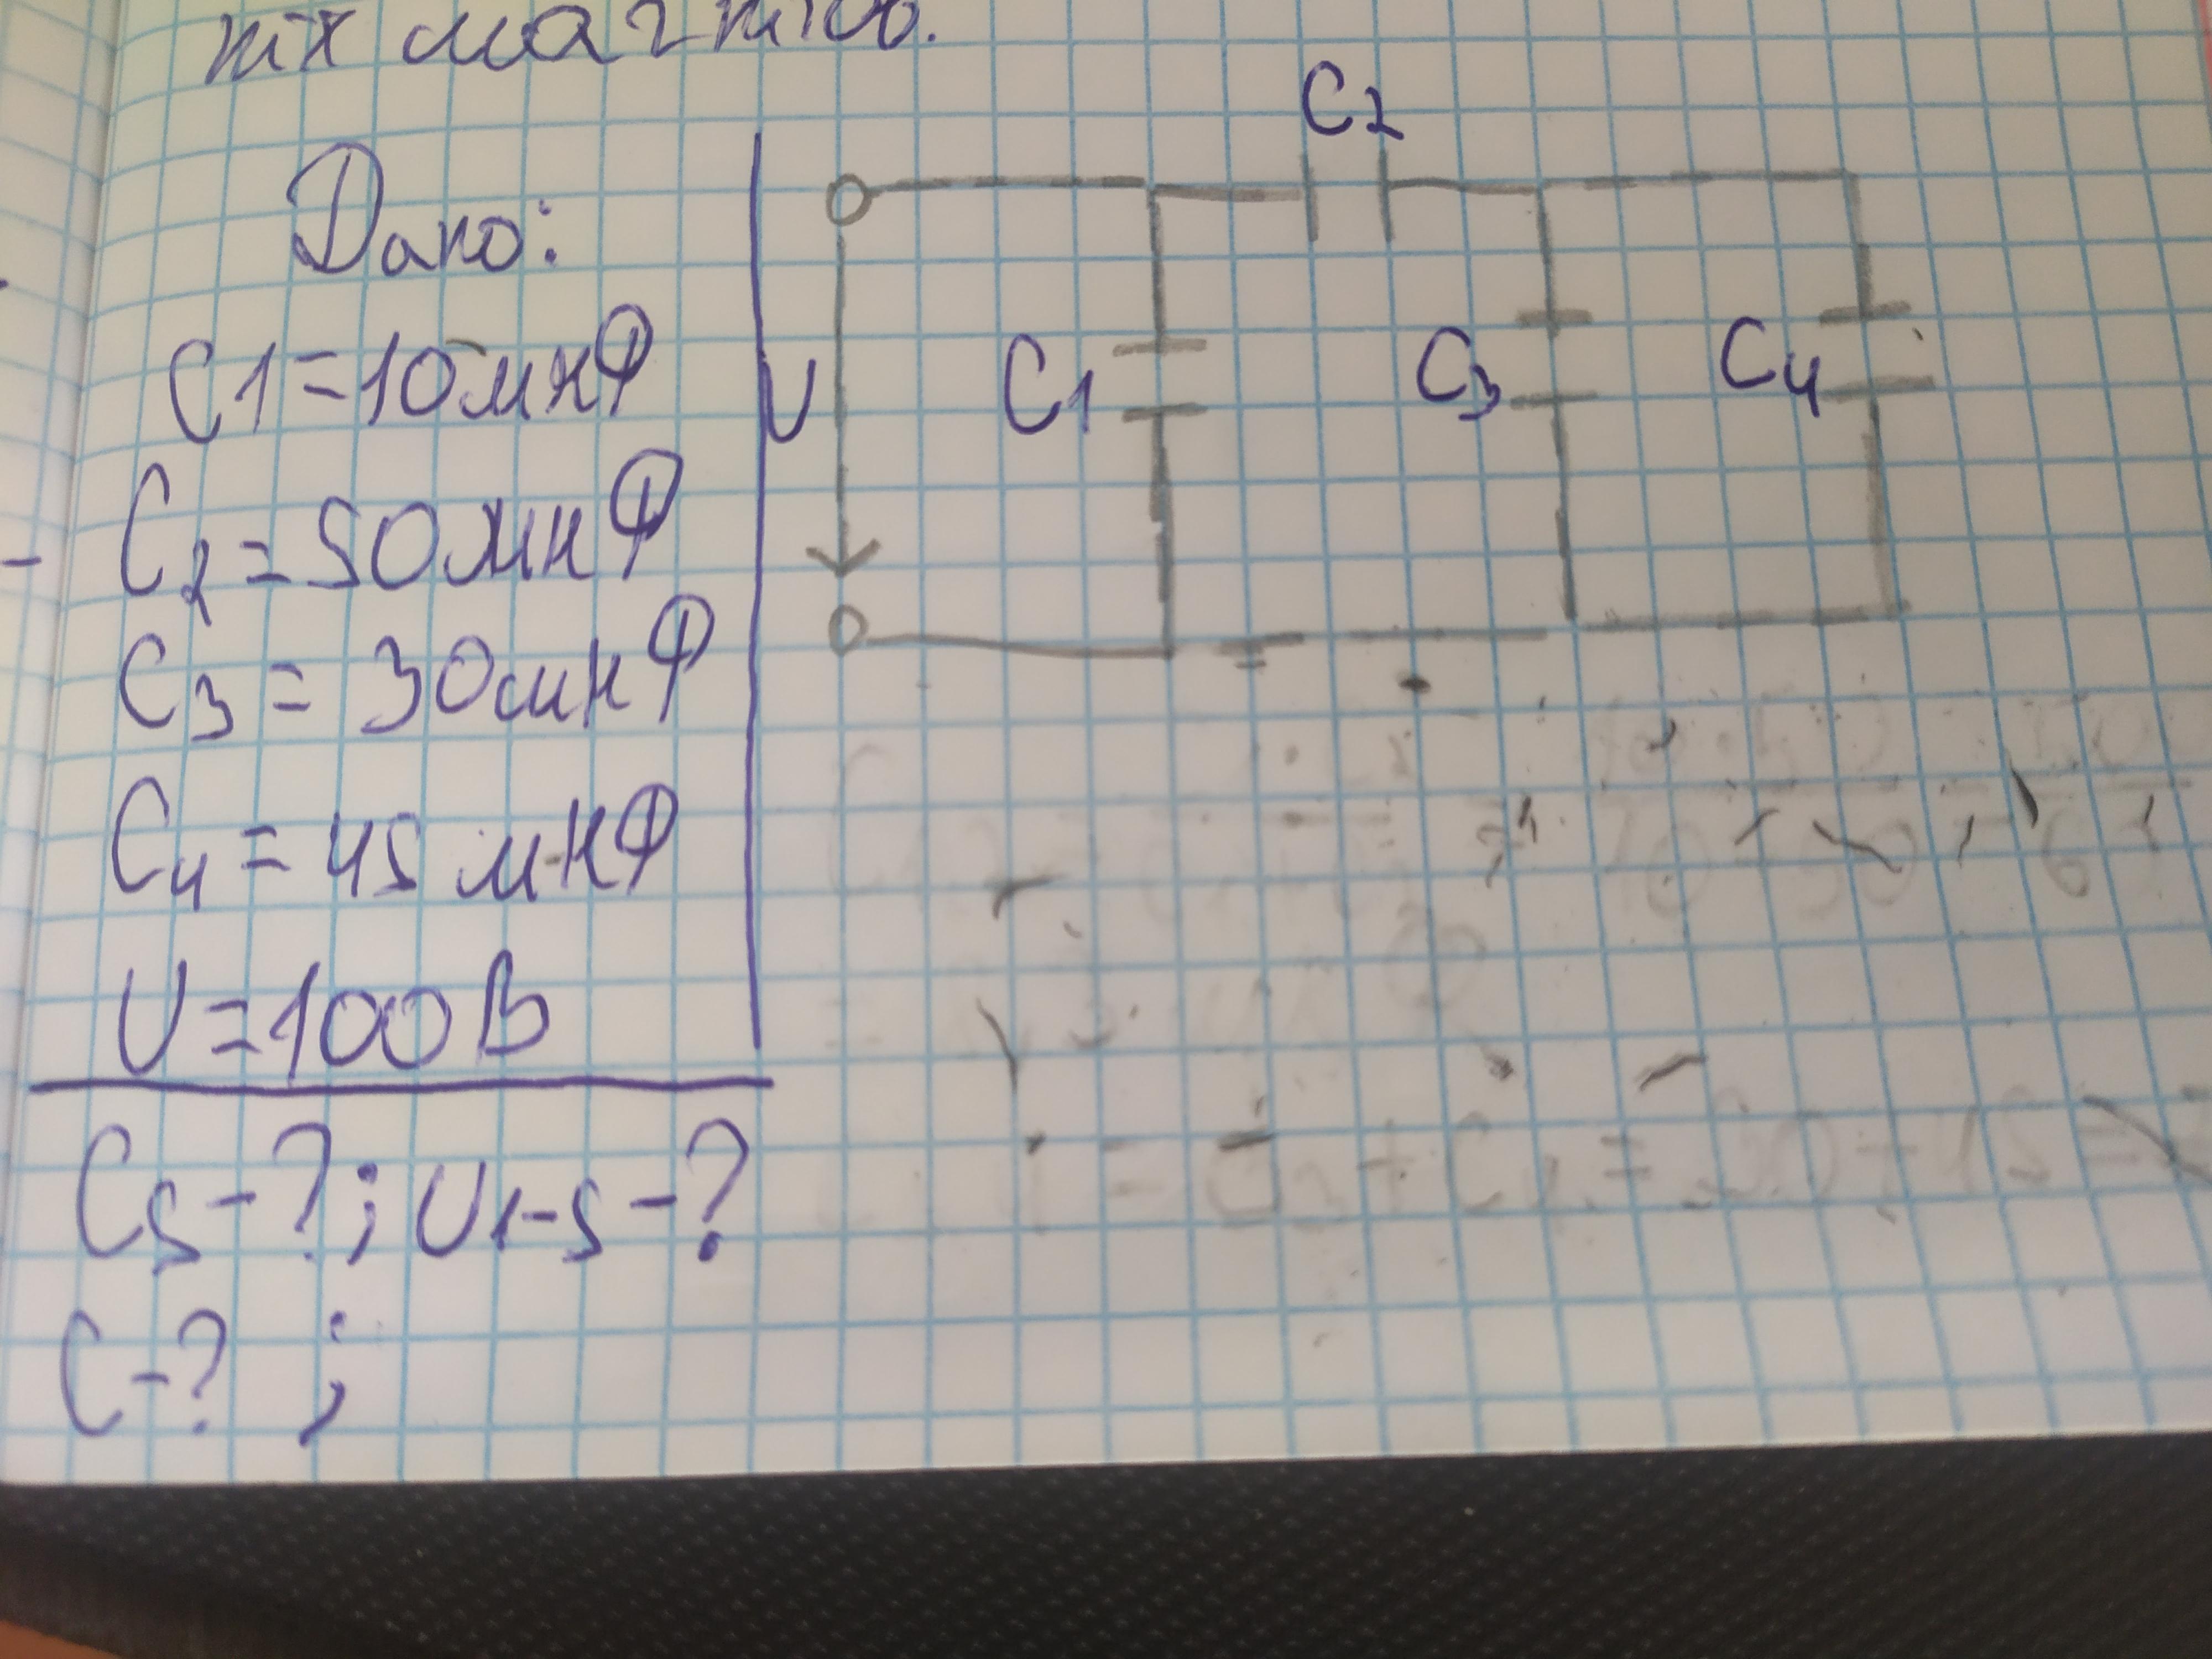 Дано:
C1=10мкФ
C2=50мкФ
C3=30мкФ
C4=45мкФ
U=100В
C5-?; U1-5-?
C-?;
C2
U
C1
C3
C4